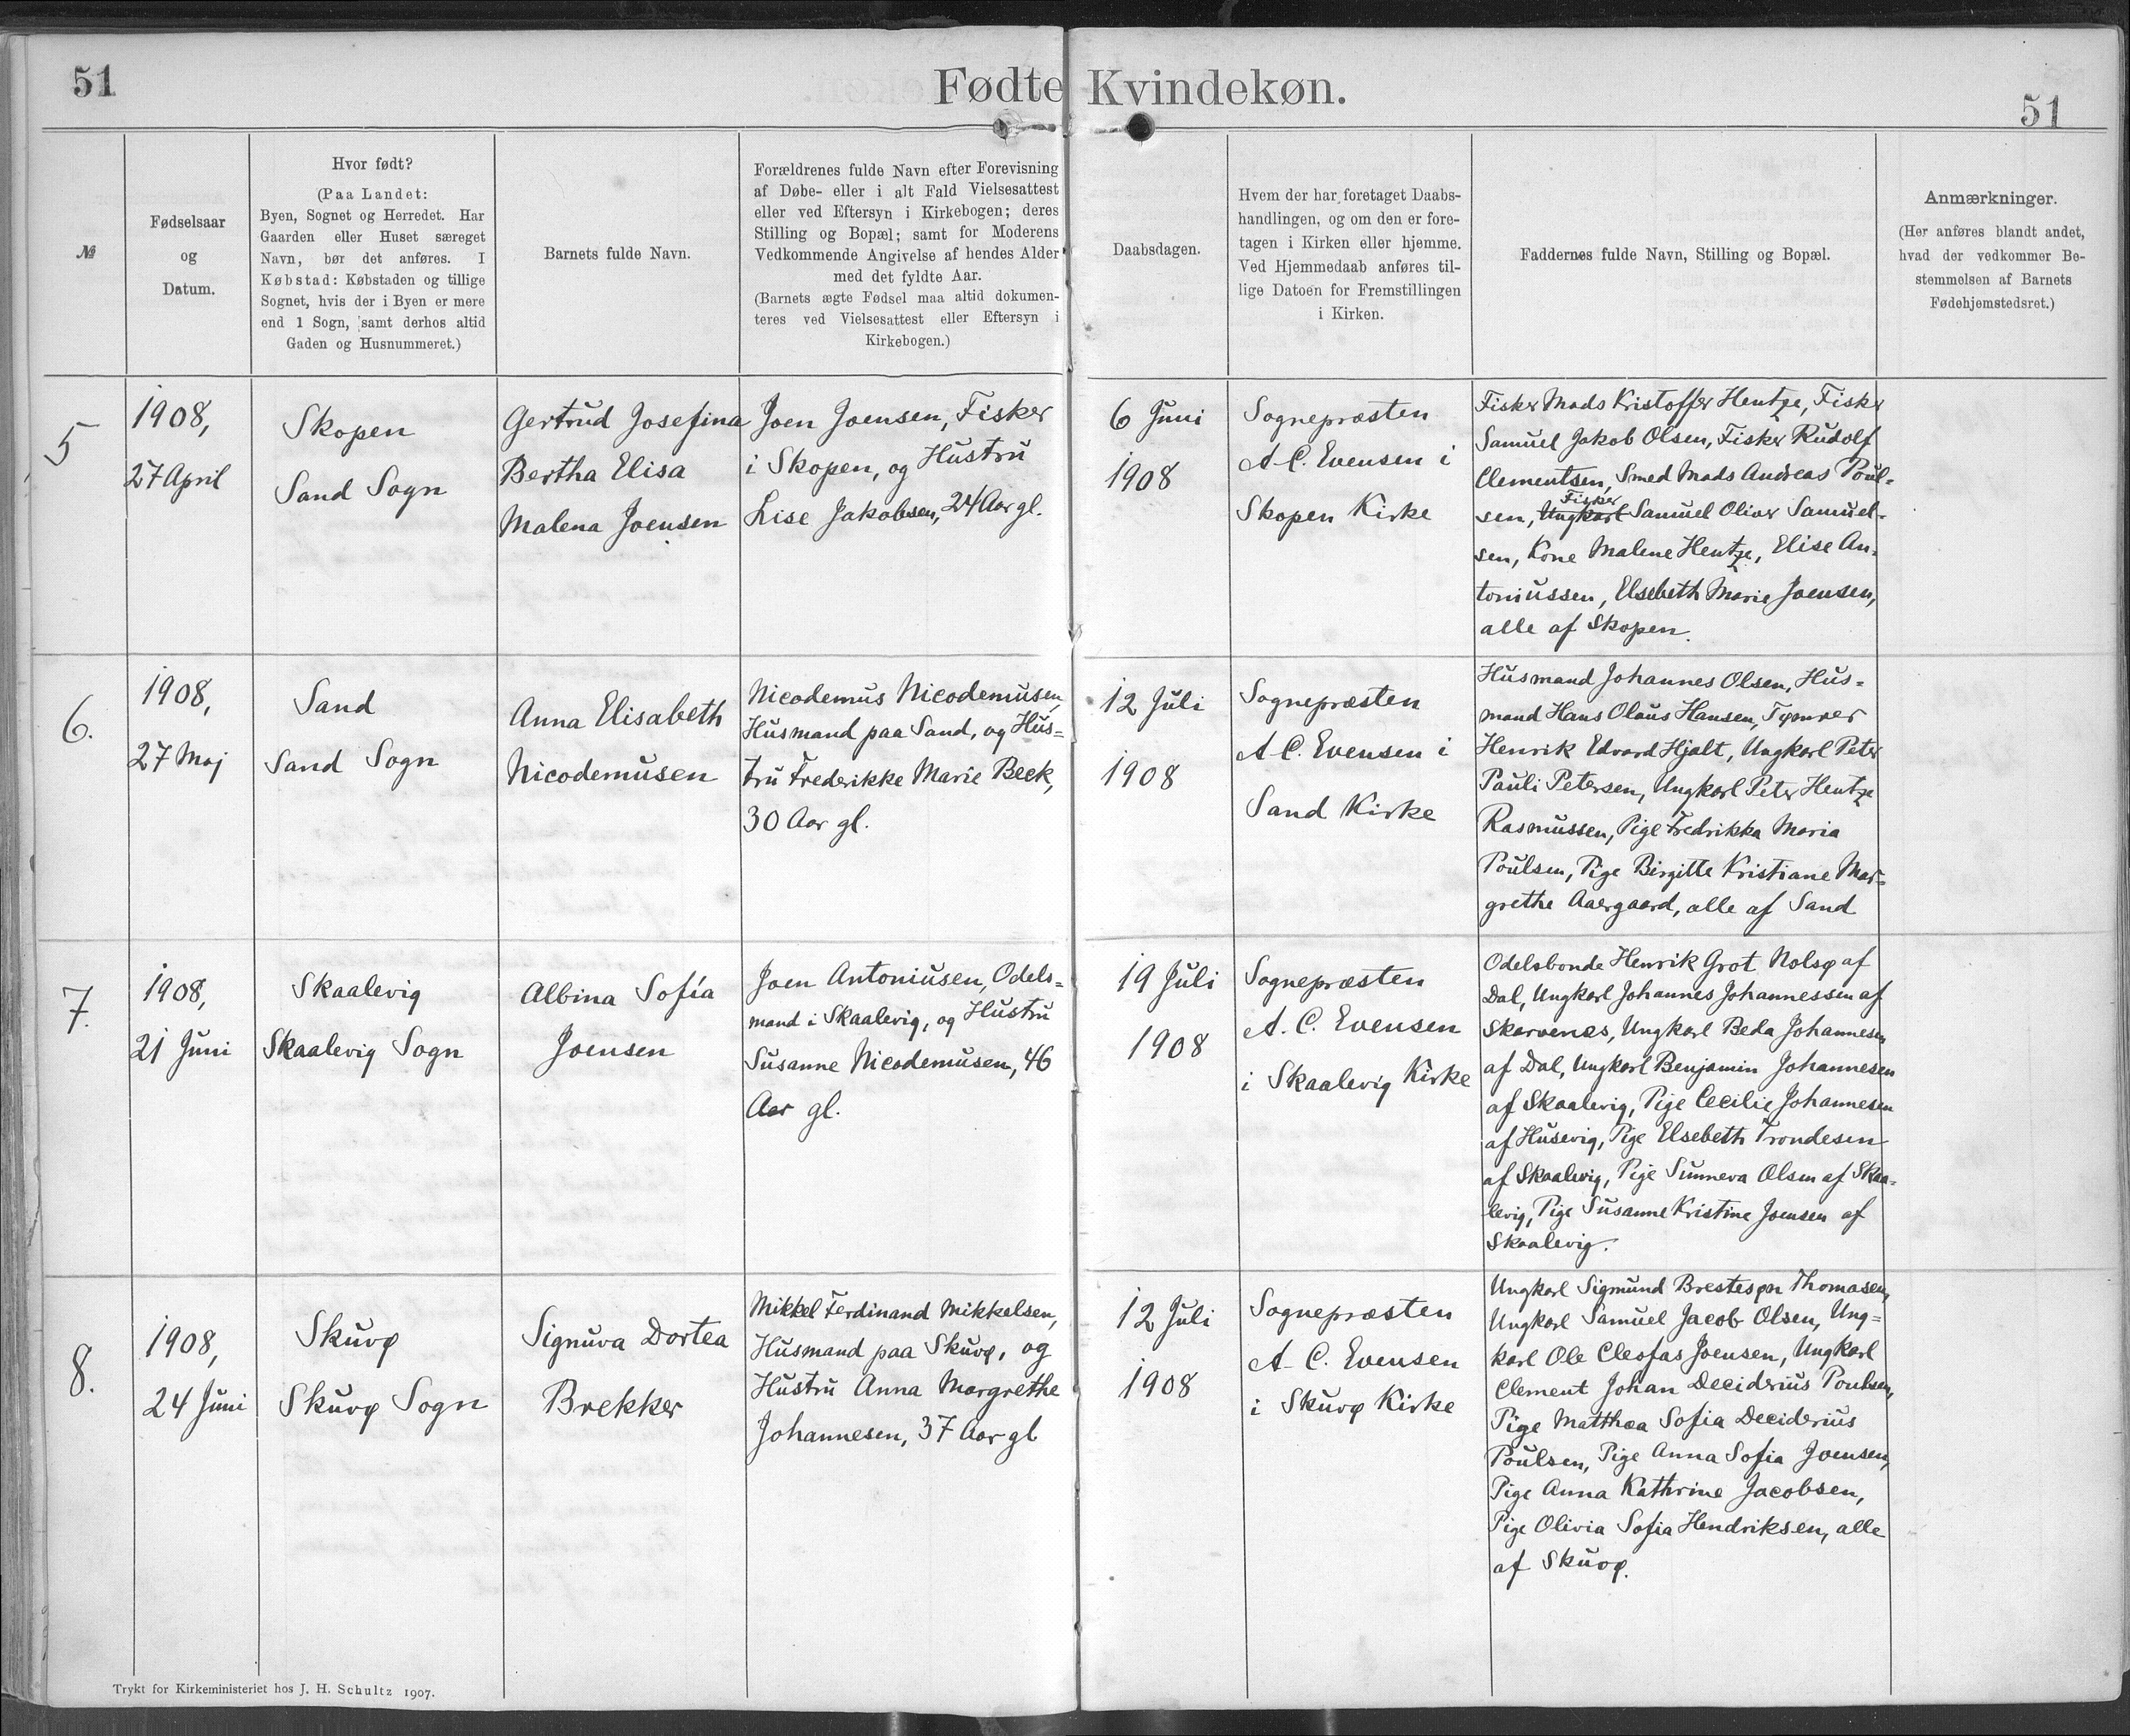 51
Fødte Kvindekøn.
51
№
Fødselsaar
og
Datum.
Hvor født?
(Paa Landet:
Byen, Sognet og Herredet. Har
Gaarden eller Huset særeget
Navn, bør det anføres. I
Købstad: Købstaden og tillige
Sognet, hvis der i Byen er mere
end 1 Sogn, samt derhos altid
Gaden og Husnummeret.)
Barnets fulde Navn.
Forældrenes fulde Navn efter Forevisning
af Døbe- eller i alt Fald Vielsesattest
eller ved Eftersyn i Kirkebogen; deres
Stilling og Bopæl; samt for Moderens
Vedkommende Angivelse af hendes Alder
med det fyldte Aar.
(Barnets ægte Fødsel maa altid dokumen-
teres ved Vielsesattest eller Eftersyn i
Kirkebogen.)
Daabsdagen.
Hvem der har foretaget Daabs-
handlingen, og om den er fore-
tagen i Kirken eller hjemme.
Ved Hjemmedaab anføres til-
lige Datoen for Fremstillingen
i Kirken.
Faddernes fulde Navn, Stilling og Bopæl.
Anmærkninger.
(Her anføres blandt andet,
hvad der vedkommer Be-
stemmelsen af Barnets
Fødehjemstedsret.)
5
1908,
27 April
Skopen
Sand Sogn
Gertrud Josefina
Bertha Elisa
Malena Joensen
Joen Joensen, Fisker
i Skopen, og Hustru
Lise Jakobsen, 24 Aar gl.
6 Juni
1908
Sognepræsten
A. C. Evensen i
Skopen Kirke
Fisker Mads Kristoffer Hentze, Fisker
Samuel Jakob Olsen, Fisker Rudolf
Clementsen, Smed Mads Andreas Poul=
Fisker
sen, Ungkarl Samuel Oliver Samuel-
sen, Kone Malene Hentze, Elise An-
toniussen, Elsebeth Marie Joensen,
alle af Skopen.
6.
1908,
27 Maj
Sand
Sand Sogn
Anna Elisabeth
Nicodemusen
Nicodemus Nicodemusen,
Husmand paa Sand, og Hus=
tru Frederikke Marie Beck,
30 Aar gl.
12 Juli
1908
Sognepræsten
A C. Evensen i
Sand Kirke
Husmand Johannes Olsen, Hus=
mand Hans Olaus Hansen, Tømrer
Henrik Edvard Hjalt, Ungkarl Peter
Pauli Petersen, Ungkarl Peter Hentze
Rasmussen, Pige Fredrikka Maria
Poulsen, Pige Birgitte Kristiane Mar=
grethe Aaergaard, alle af Sand
7.
1908,
21 Juni
Skaalevig
Skaalevig Sogn
Albina Sofía
Joensen
Joen Antoniusen, Odels=
mand i Skaalevig, og Hustru
Susanne Nicodemusen, 46
Aar gl.
19 Juli
1908
Sognepræsten
A. C. Evensen
i Skaalevig Kirke
Odelsbonde Henrik Grot Nolsø af
Dal, Ungkarl Johannes Johannessen af
Skarvenes, Ungkarl Beda Johannesen
af Dal, Ungkarl Benjamin Johannesen
af Skaalevig, Pige Cecilie Johannesen
af Husevig, Pige Elsebeth Trondesen
af Skaalevig, Pige Sunneva Olsen af Skaa-
levig, Pige Susanne Kristine Joensen af
Skaalevig.
8.
1908,
24 Juni
Skuvø
Skuvø Sogn
Signuva Dortea
Brekker
Mikkel Ferdinand Mikkelsen,
Husmand paa Skuvø, og
Hustru Anna Margrethe
Johannesen, 37 Aar gl
12 Juli
1908
Sognepræsten
A. C. Evensen
i Skuvø Kirke
Ungkarl Sigmund Brestesøn Thomasen,
Ungkarl Samuel Jacob Olsen, Ung=
karl Ole Cleofas Joensen, Ungkarl
Clement Johan Deciderius Poulsen,
Pige Matthæa Sofia Deciderius
Poulsen, Pige Anna Sofia Joensen,
Pige Anna Kathrine Jacobsen,
Pige Olivia Sofia Hendriksen, alle
af Skuvø.
Trykt for Kirkeministeriet hos J. H. Schultz 1907.